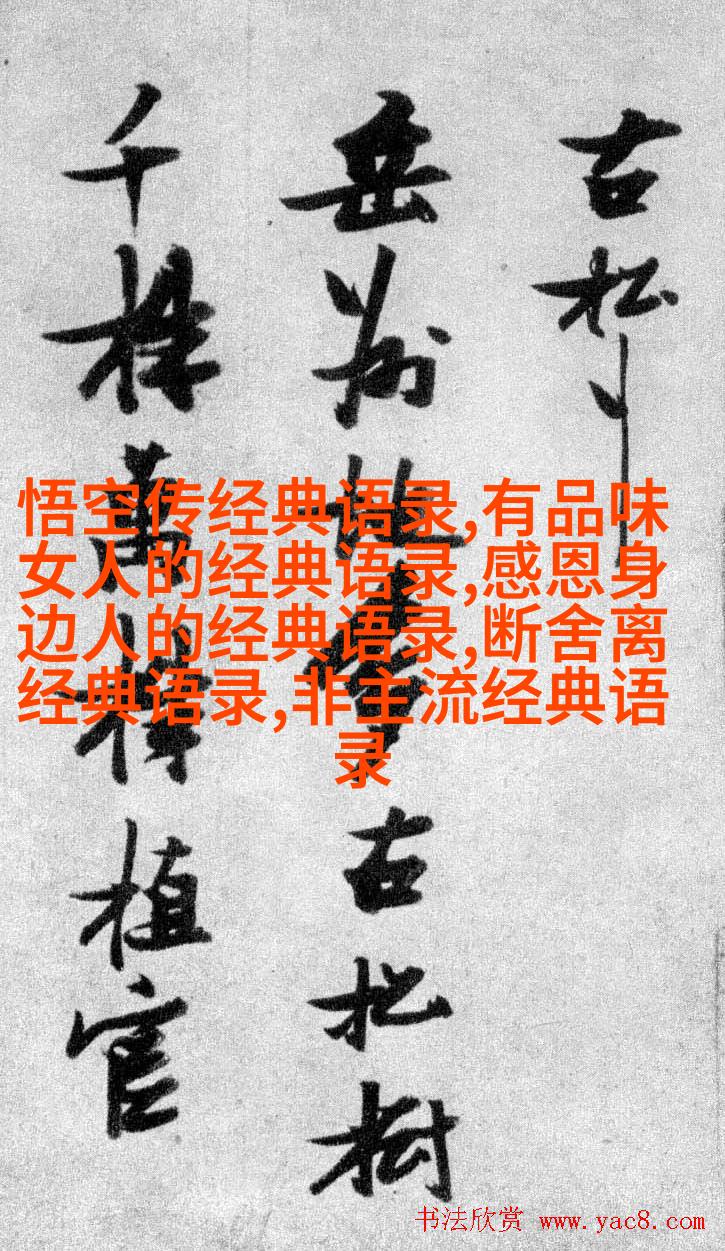 古松
岳州古松樹
千株萬株植官
悟空传经典语录,有品味
女人的经典语录,感恩身
边人的经典语录,断舍离
经典语录,非主流经典语
录
书法欣赏 www.yac8.com